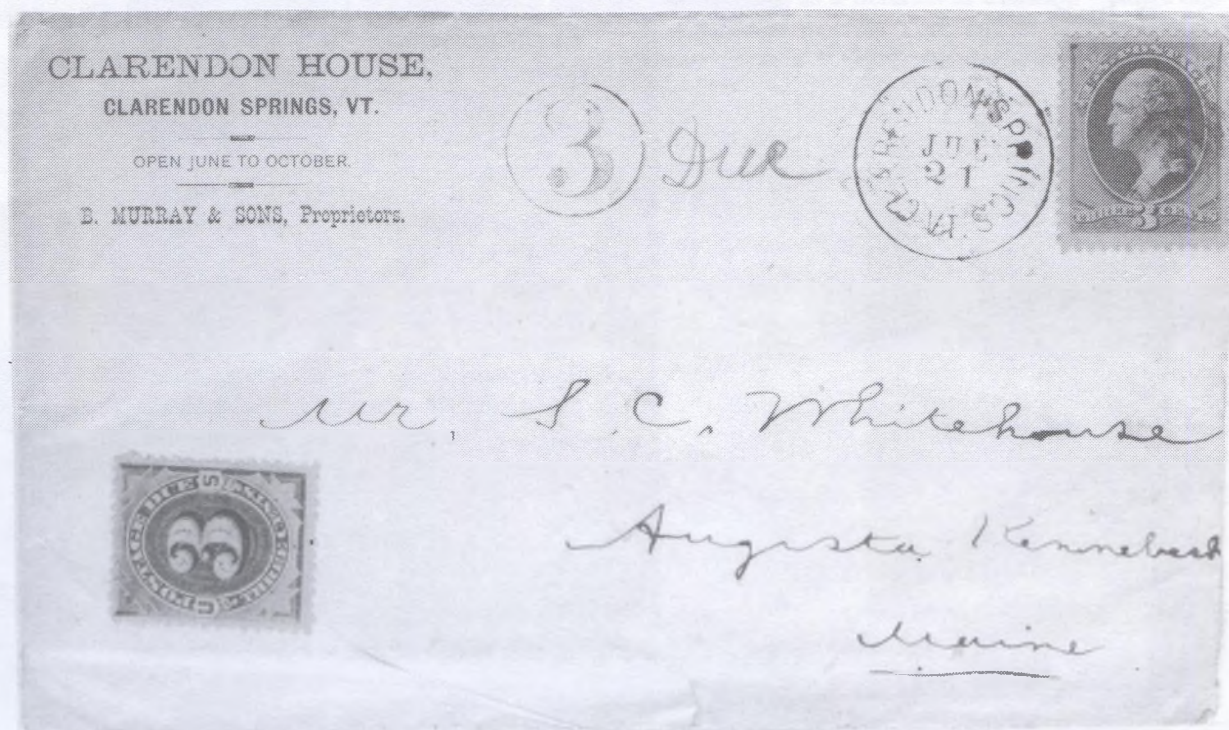 CLARENDON HOUSE,
CLARENDON SPRINGS, VT.
OPEN JUNE TO OCTOBER.
B. MURRAY & SONS, Proprietors.
3 Due
CLARENDON SPRINGS, VT.
JUL
21
U.S. POSTAGE
THREE 3 CENTS
Mr. S. C. Whitehouse
Augusta Kennebeck
Maine
U S POSTAGE DUE
3
THREE CENTS